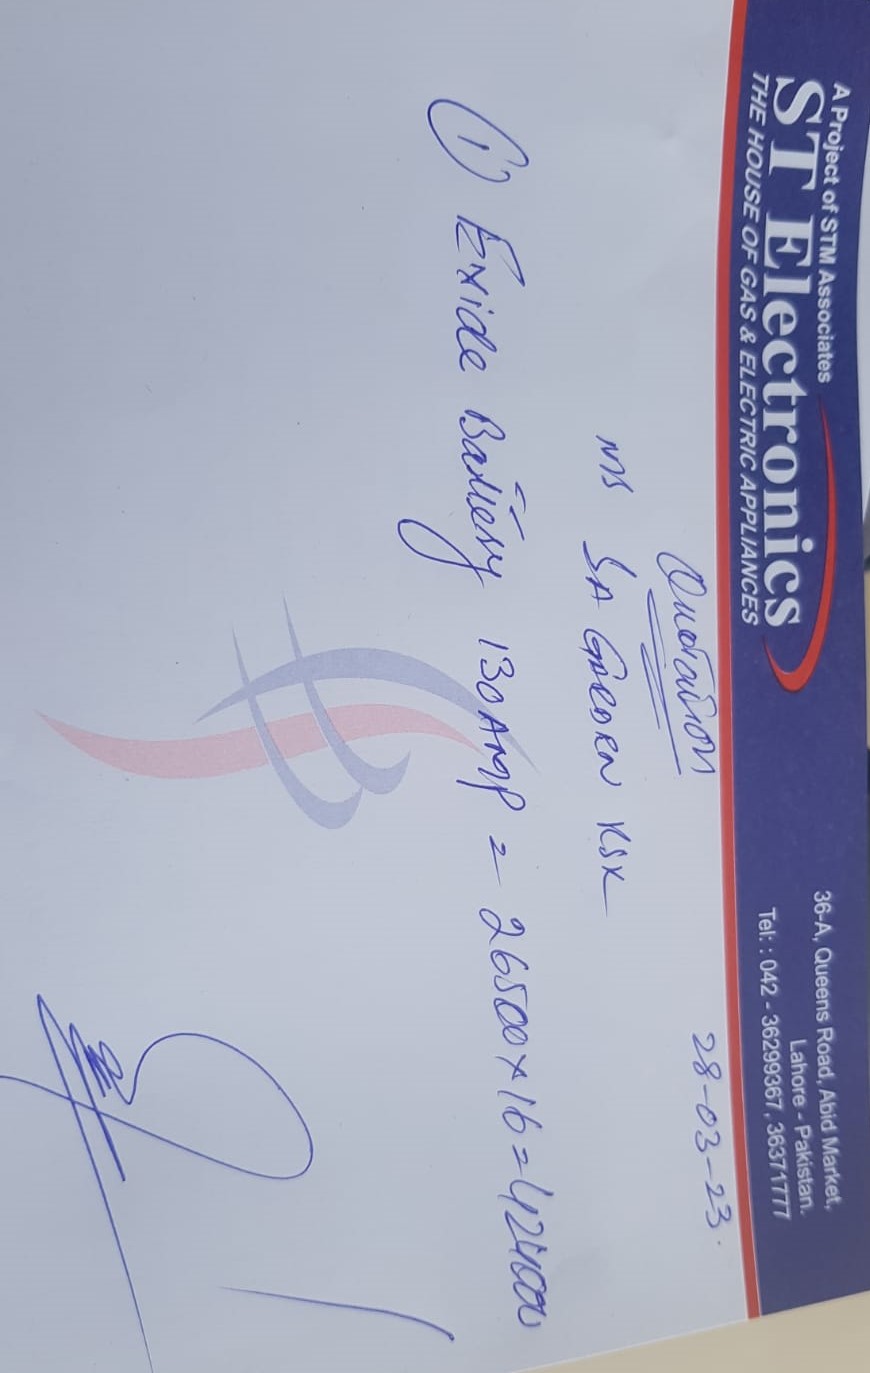 A Project of STM Associates
ST Electronics
THE HOUSE OF GAS & ELECTRIC APPLIANCES
36-A, Queens Road, Abid Market,
Lahore - Pakistan.
Tel: : 042 - 36299367, 36371777
Quotation
28-03-23.
M/S SA GARDEN KSK
① Exide Battery 130 AMP = 26500 x 16 = 424000